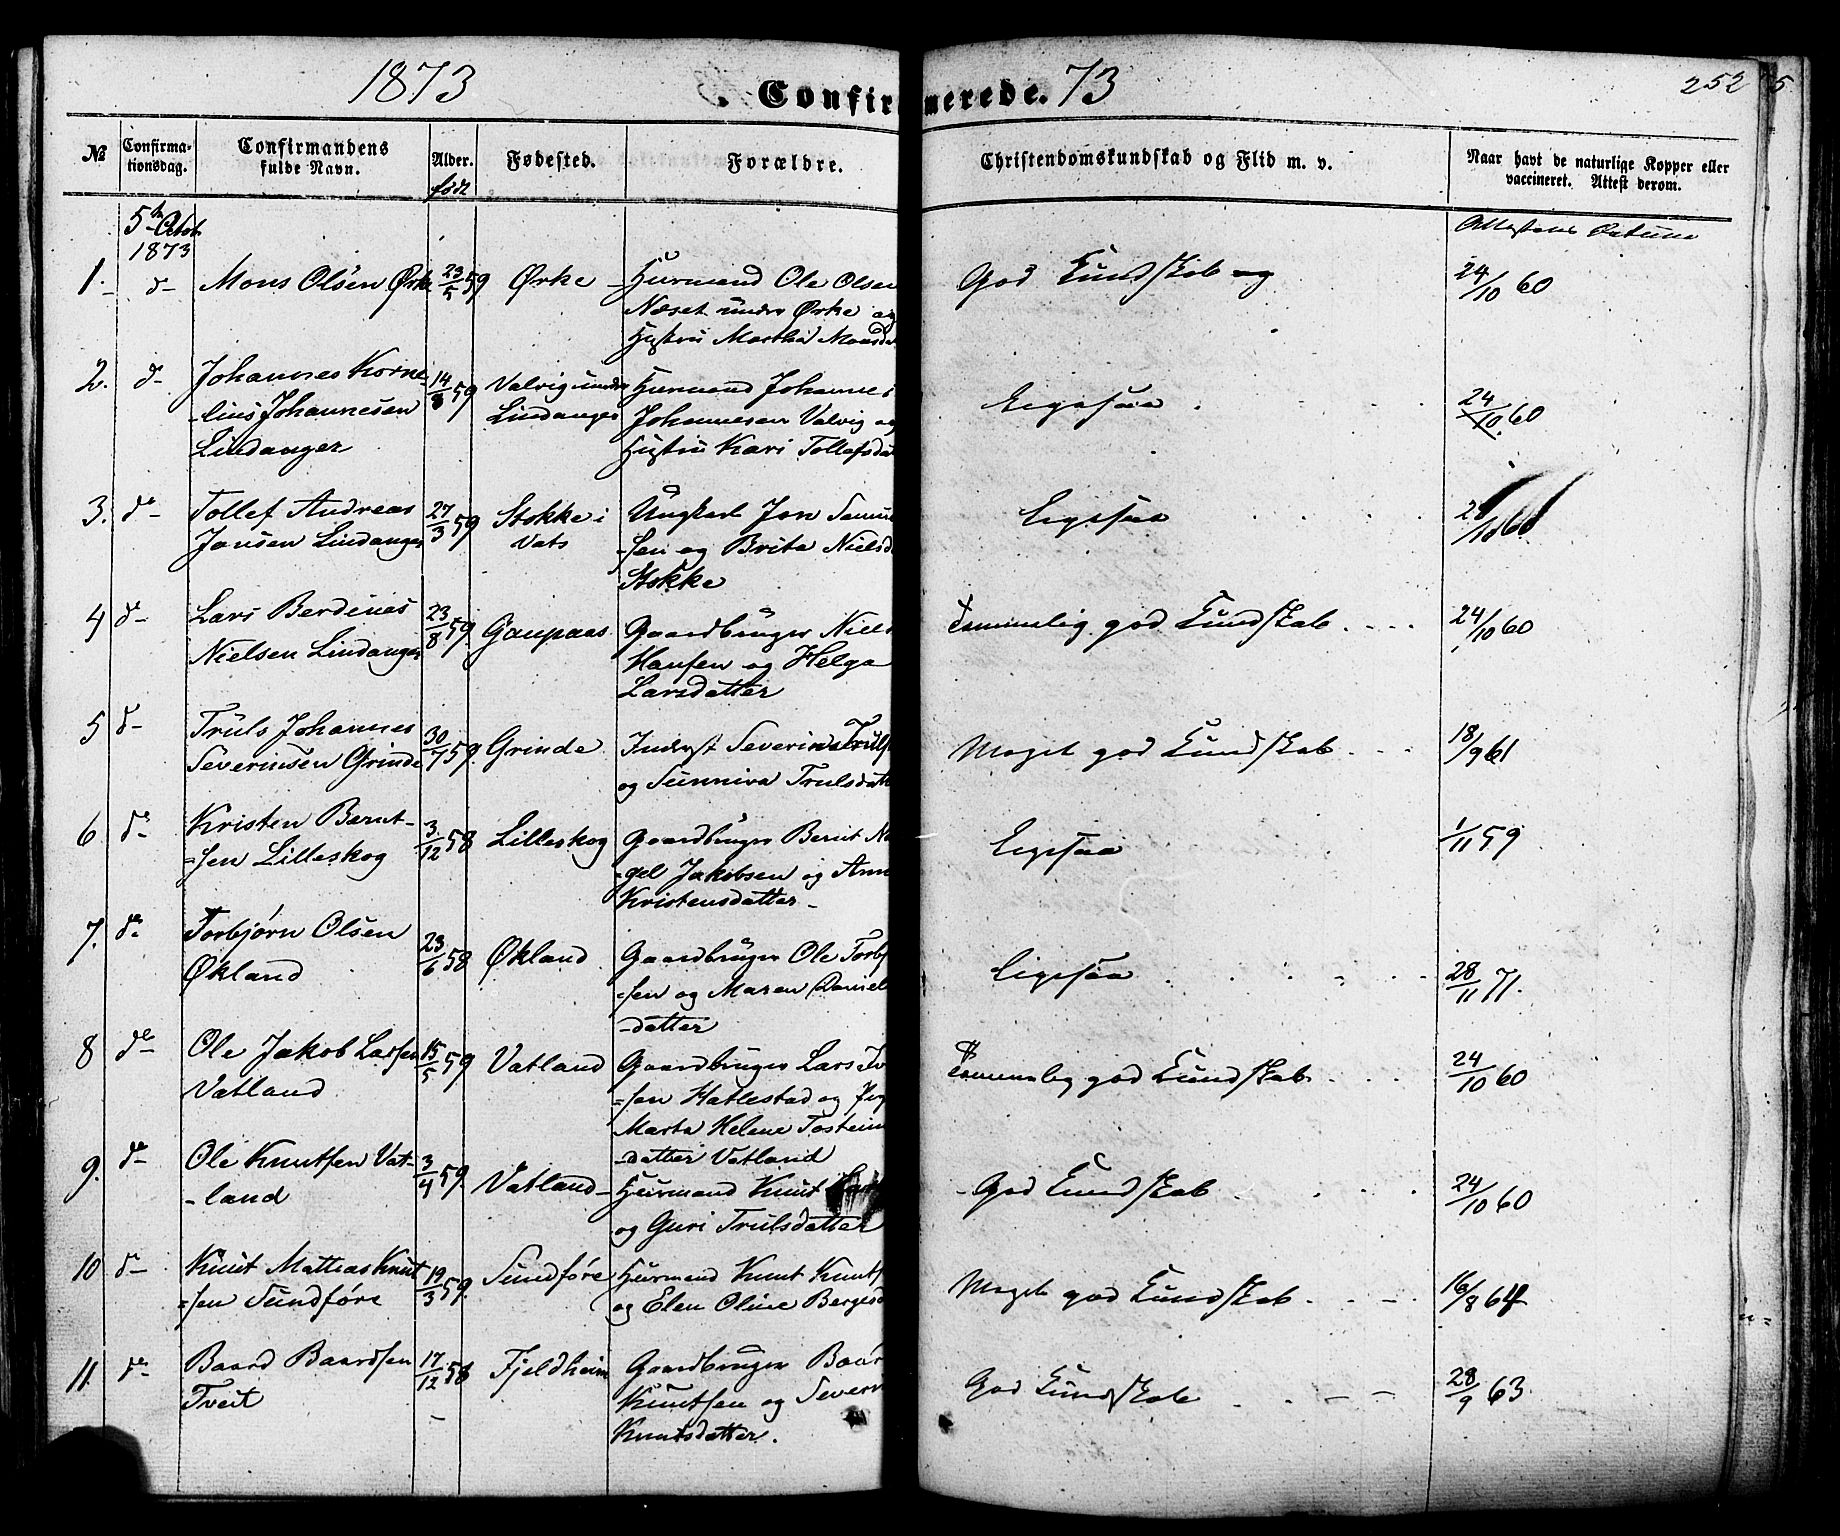 1873
Confirmerede. 73
252
№
Confirma-
tionsdag.
Confirmandens
fulde Navn.
Alder.
født
Fødested.
Forældre.
Christendomskundskab og Flid m. v.
Naar havt de naturlige Kopper eller
vaccineret. Attest derom.
5te Octob.
1873
Attestens Datum
1. d- Mons Olsen Ørke 23/5 59 Ørke - Huusmand Ole Olsen God Kundskab og 24/10 60
Næset under Ørke og
Hustru Martha Monsda
2. d- Johannes Korne- 14/8 59 Valvig under Huusmand Johannes Ligesaa 24/10 60
-lius Johannesen Lindanger Johannesen Valvig og
Lindanger Hustru Kari Tollefsda
3. do- Tollef Andreas 27/3 59 Stokke i Ungkarl Jon Samu Ligesaa
Jonsen Lindanger Vats -sen og Brita Nielsd
Stokke
4 do- Lars Berdinas 23/8 59 Gaupaas Gaardbruger Niels Temmelig god Kundskab 24/10 60
Nielsen Lindanger Hansen og Helga
Larsdatter
5 d- Truls Johannes 30/1 59. Grinde Inderst Severin Truls Meget god Kundskab 18/9 61
Severinsen Grinde og Sunniva Trulsdatt
6. do- Kristen Bernt- 3/12 58 Lilleskog Gaardbruger Bernt Na Ligesaa 1/11 59
=sen Lilleskog -gel Jakobsen og Ann
Kristensdatter -
7. do- Torbjørn Olsen 23/6 58 Økland Gaardbruger Ole Torb Ligesaa 28/11 71.
Økland =sen og Maren Daniel
-datter
8 do- Ole Jakob Larsen 15/5 59 Vatland Gaardbruger Lars Temmelig god Kundskab 24/10 60
Vatland =sen Hatlestad og Pige
Marta Helene Tosteins
-datter Vatland
9. do- Ole Knutsen Vat- 3/4 59 Vatland - Huusmand Knut Lars - God Kundskab 24/10 60
-land og Guri Trulsdatter
10 d- Knut Mathias Knut 19/3 59 Sundføre Huusmand Knut Knuts Meget god Kundskab 16/8 64
=sen Sundføre og Elen Oline Bergesd
11. do- Baard Baardsen 17/12 58 Fjeldheim Gaardbruger Baar God Kundskab 28/9 63
Tveit Knutsen og Severi
Knutsdatter.